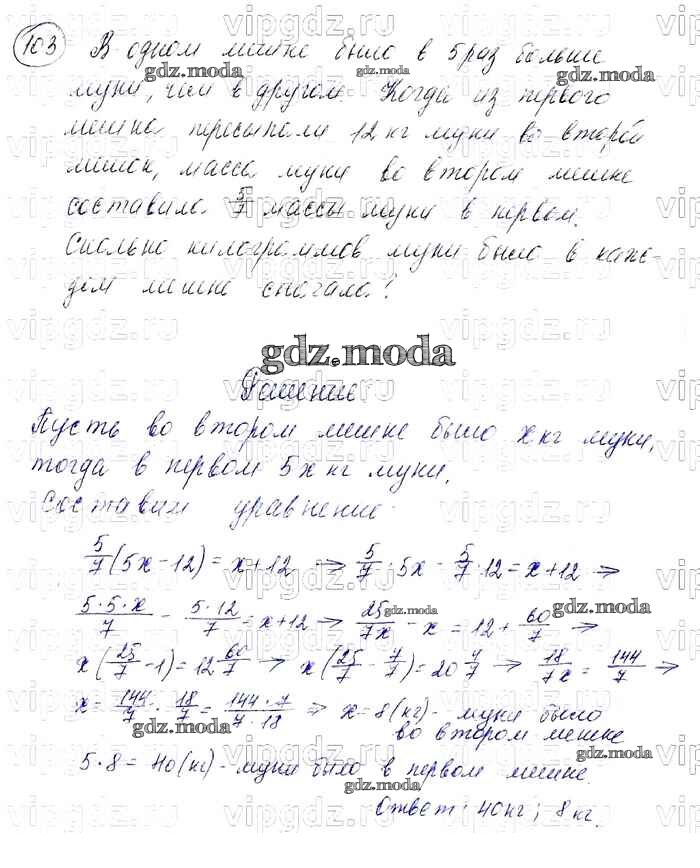 103 В одном мешке было в 5 раз больше
муки, чем в другом. Когда из первого
мешка пересыпали 12 кг муки во второй
мешок, масса муки во втором мешке
составила 5/7 массы муки в первом.
Сколько килограммов муки было в каж-
дом мешке сначала?
gdz.moda
Решение
Пусть во втором мешке было x кг муки,
тогда в первом 5x кг муки.
Составим уравнение:
5/7(5x-12)=x+12 ⇒ 5/7·5x - 5/7·12=x+12 ⇒
5·5·x/7 - 5·12/7 = x+12 ⇒ 25/7x - x = 12+ 60/7 ⇒
x(25/7 -1)=12 60/7 ⇒ x(25/7 - 7/7)=20 4/7 ⇒ 18/7x = 144/7 ⇒
x= 144/7 : 18/7 = 144·7/7·18 ⇒ x=8(кг)- муки было
во втором мешке
5·8=40(кг)-муки было в первом мешке.
Ответ: 40кг; 8кг.